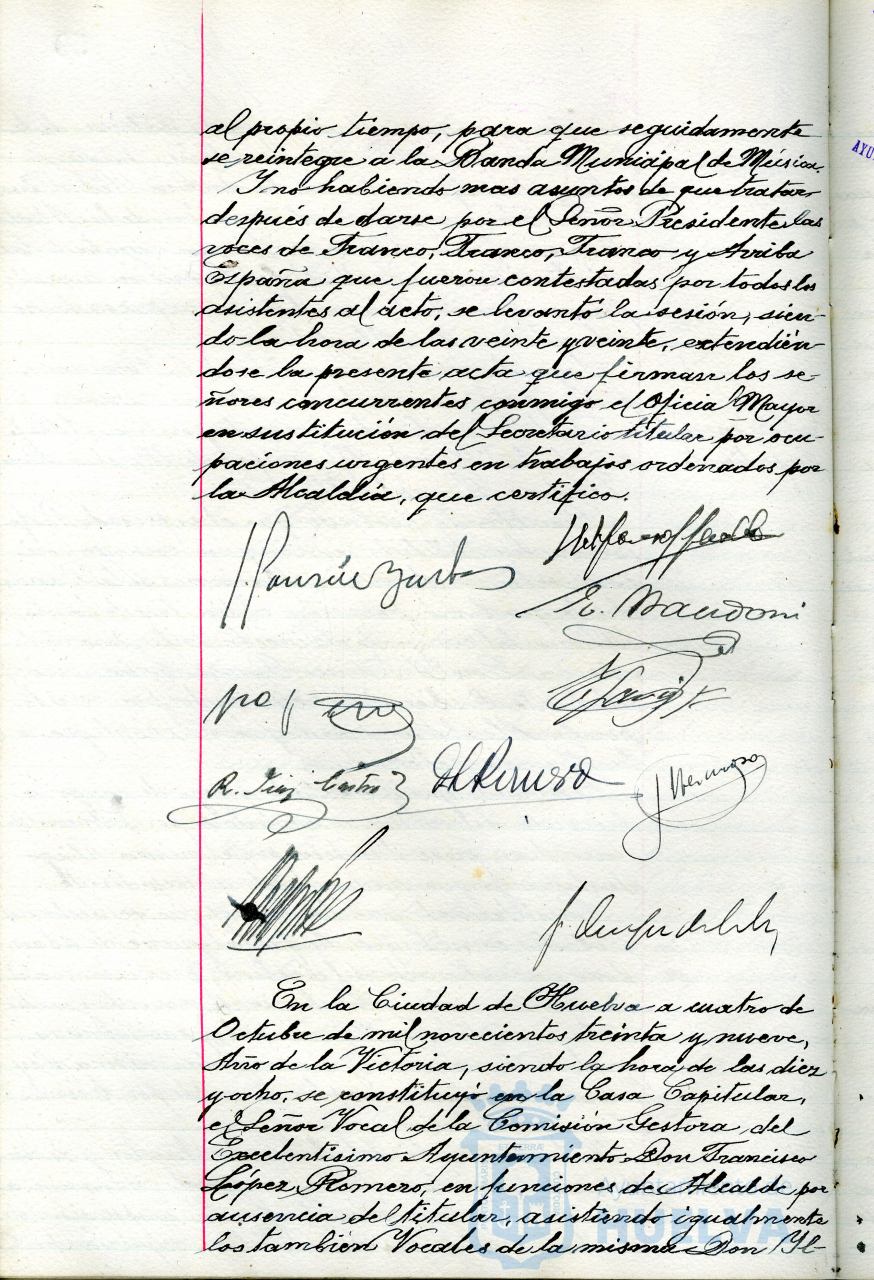 al propio tiempo, para que seguidamente
se reintegre a la Banda Municipal de Música.
Y no habiendo mas asuntos de que tratar,
después de darse por el Señor Presidente las
voces de Franco, Franco, Franco y Arriba
España que fueron contestadas por todos los
asistentes al acto, se levantó la sesión, sien-
do la hora de las veinte y veinte, extendién-
dose la presente acta que firman los se-
ñores concurrentes conmigo el Oficial Mayor
en sustitución del Secretario titular por ocu-
paciones urgentes en trabajos ordenados por
la Alcaldía, que certifico.
R. Castro
En la Ciudad de Huelva a cuatro de
Octubre de mil novecientos treinta y nueve,
Año de la Victoria, siendo la hora de las diez
y ocho, se constituyó en la Casa Capitular,
el Señor Vocal de la Comisión Gestora del
Excelentísimo Ayuntamiento Don Francisco
López Romero, en funciones de Alcalde por
ausencia del titular, asistiendo igualmente
los también Vocales de la misma Don Il-
Ayuntamiento de
HUELVA
AYU